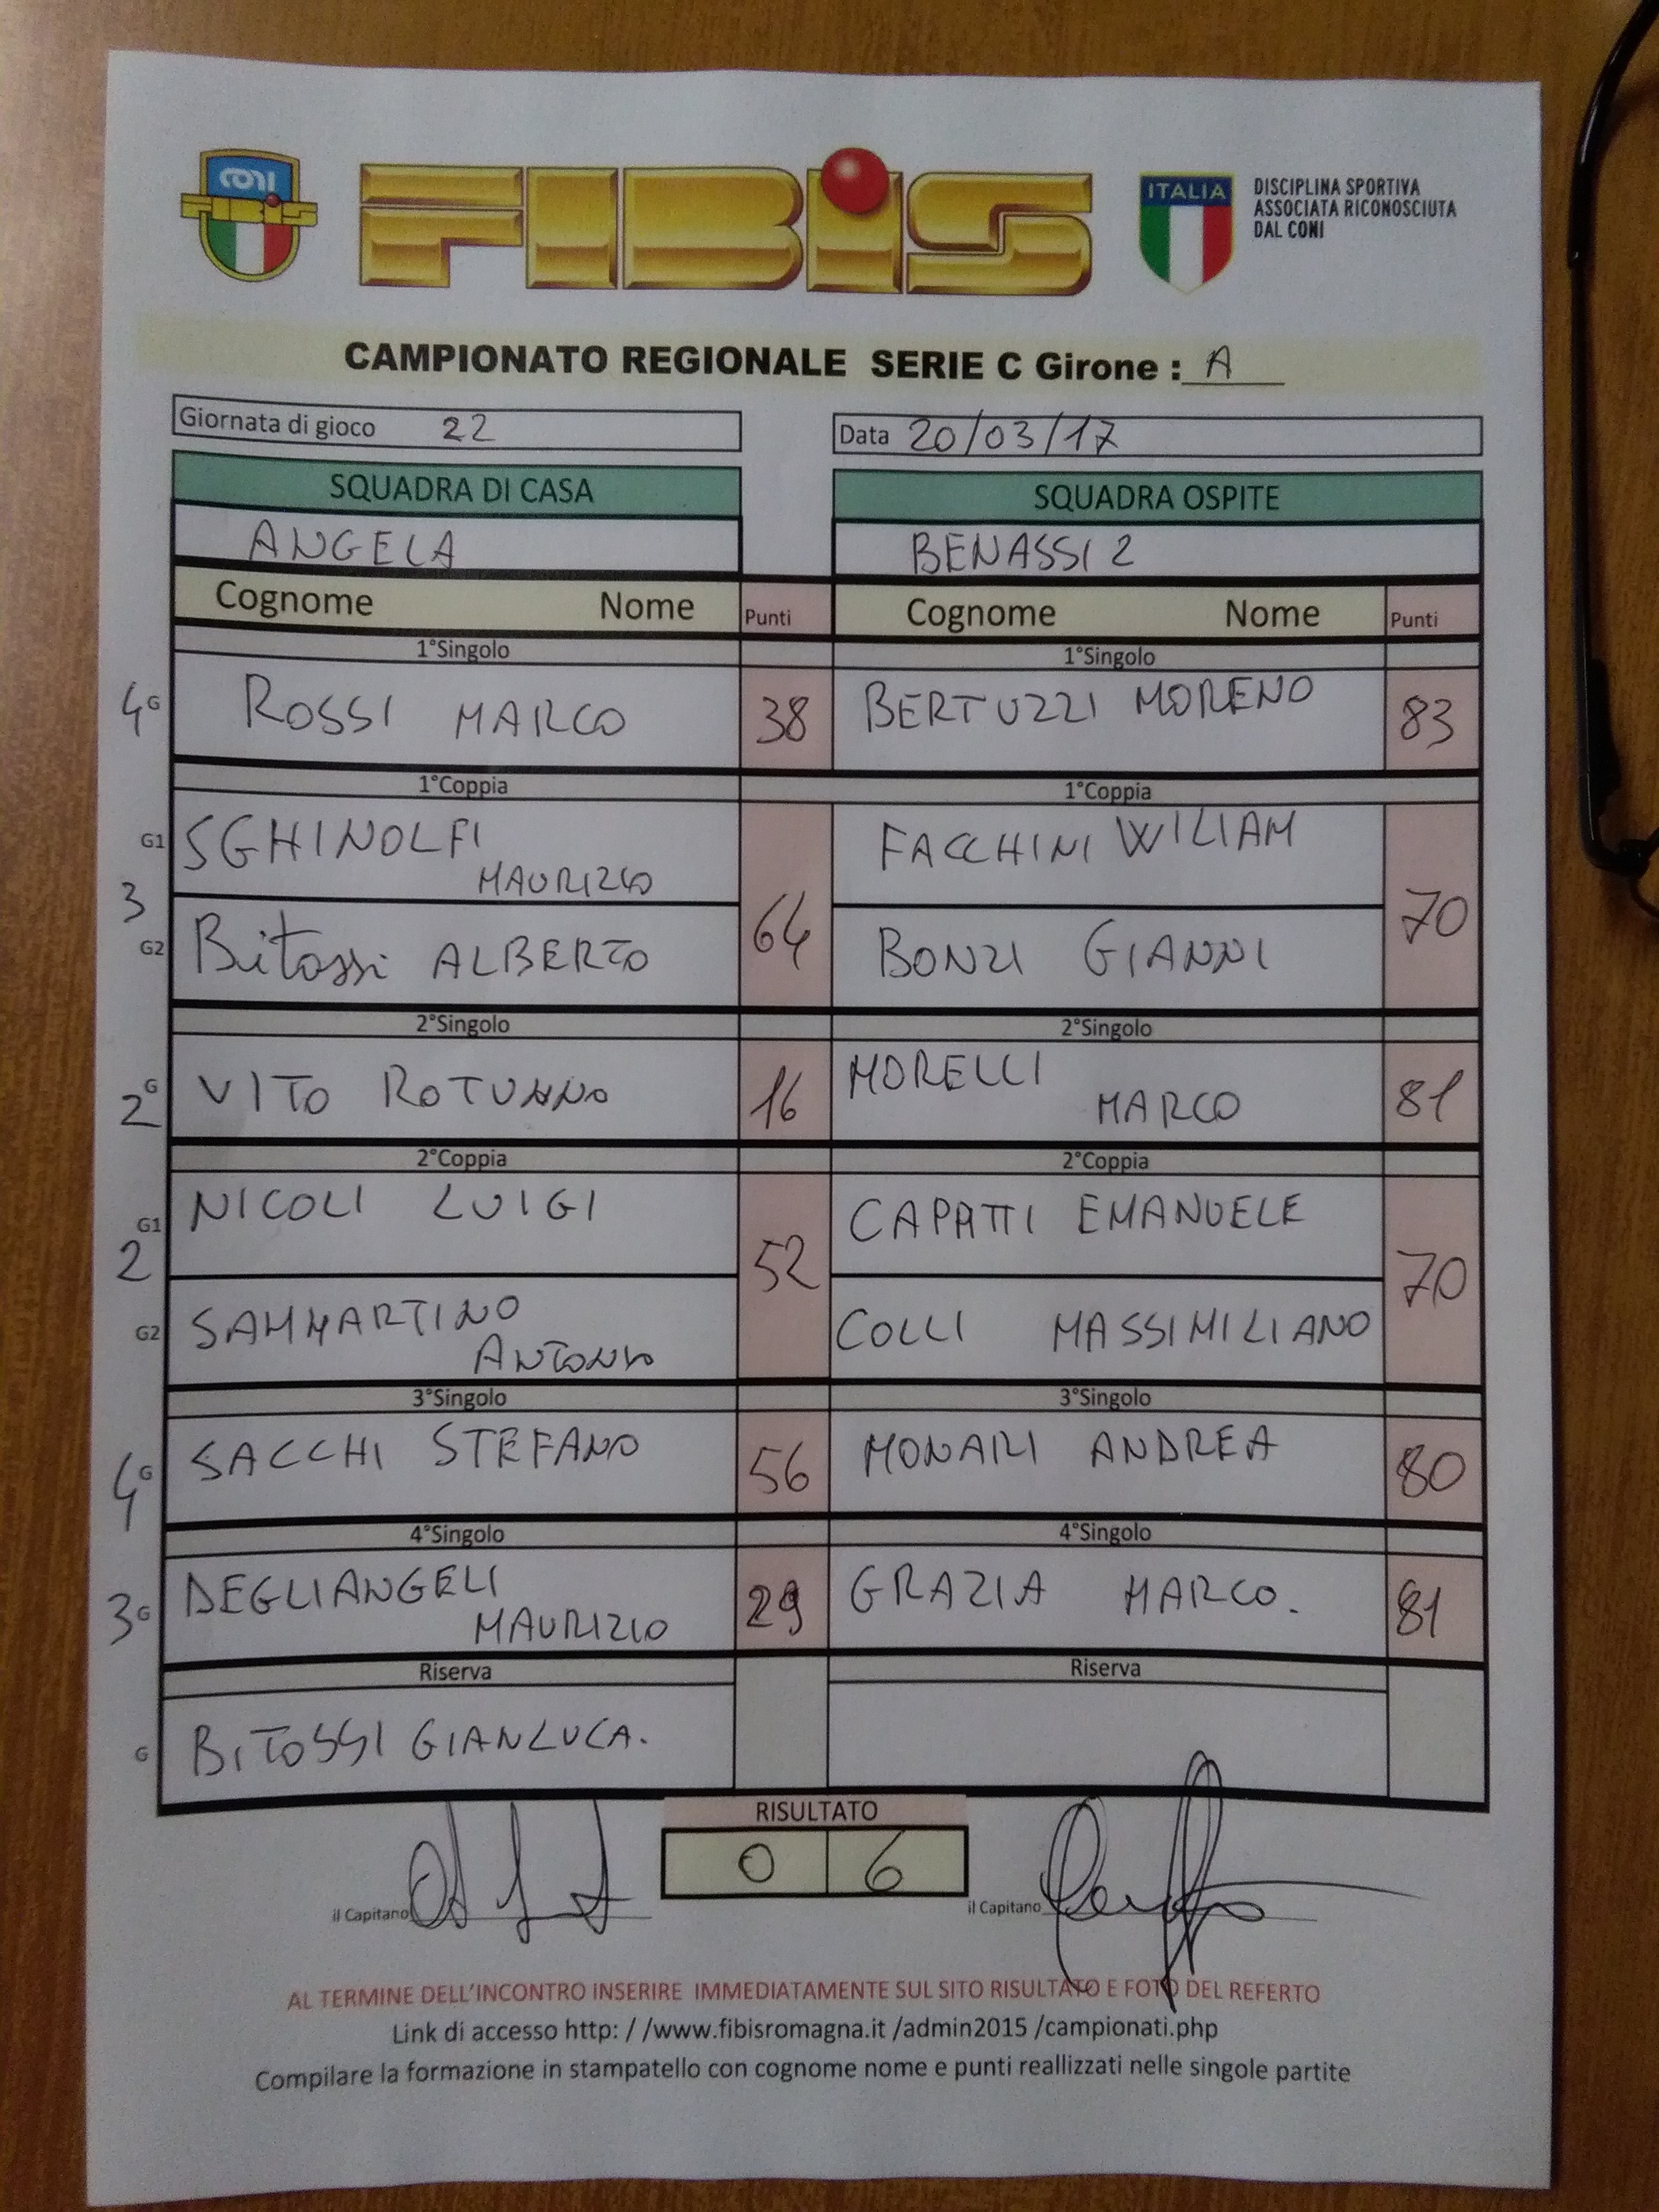 CONI
FIBIS
FIBiS
ITALIA
DISCIPLINA SPORTIVA
ASSOCIATA RICONOSCIUTA
DAL CONI
CAMPIONATO REGIONALE SERIE C Girone : A
Giornata di gioco 22 Data 20/03/17
SQUADRA DI CASA SQUADRA OSPITE
ANGELA BENASSI 2
Cognome Nome Punti Cognome Nome Punti
1°Singolo 1°Singolo
4 G ROSSI MARCO 38 BERTUZZI MORENO 83
1°Coppia 1°Coppia
G1 SGHINOLFI MAURIZIO FACCHINI WILIAM
3 64 70
G2 Bitossi ALBERTO BONZI GIANNI
2°Singolo 2°Singolo
2 G VITO ROTUNNO 16 MORELLI MARCO 81
2°Coppia 2°Coppia
G1 NICOLI LUIGI CAPATTI EMANUELE
2 52 70
G2 SAMMARTINO ANTONIO COLLI MASSIMILIANO
3°Singolo 3°Singolo
4 G SACCHI STEFANO 56 MONARI ANDREA 80
4°Singolo 4°Singolo
3 G DEGLIANGELI MAURIZIO 29 GRAZIA MARCO. 81
Riserva Riserva
G BITOSSI GIANLUCA.
RISULTATO
0 6
il Capitano il Capitano
AL TERMINE DELL'INCONTRO INSERIRE IMMEDIATAMENTE SUL SITO RISULTATO E FOTO DEL REFERTO
Link di accesso http: / /www.fibisromagna.it /admin2015 /campionati.php
Compilare la formazione in stampatello con cognome nome e punti reallizzati nelle singole partite